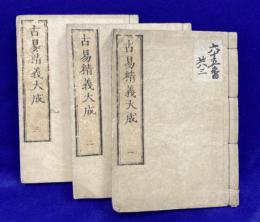 古易精義大成 一
古易精義大成 二
古易精義大成 三
六十五番
共三